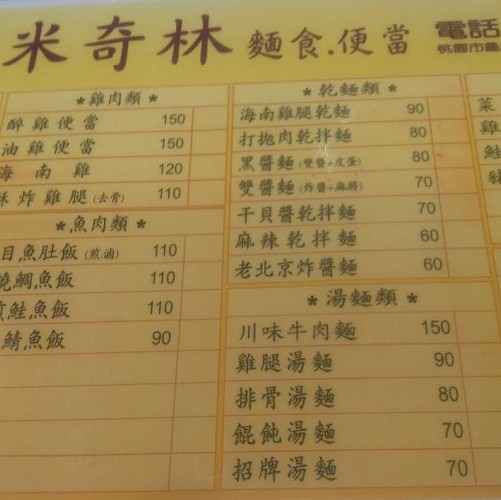 米奇林 麵食.便當 電話
桃園市龜
*雞肉類*
醉雞便當 150
油雞便當 150
海南雞 120
酥炸雞腿(去骨) 110
*魚肉類*
目魚肚飯(煎.滷) 110
燒鯛魚飯 110
煎鮭魚飯 110
鯖魚飯 90
*乾麵類*
海南雞腿乾麵 90
打拋肉乾拌麵 80
黑醬麵(雙醬+皮蛋) 80
雙醬麵(炸醬+麻將) 70
干貝醬乾拌麵 70
麻辣乾拌麵 60
老北京炸醬麵 60
*湯麵類*
川味牛肉麵 150
雞腿湯麵 90
排骨湯麵 80
餛飩湯麵 70
招牌湯麵 70
菜
雞
鮭